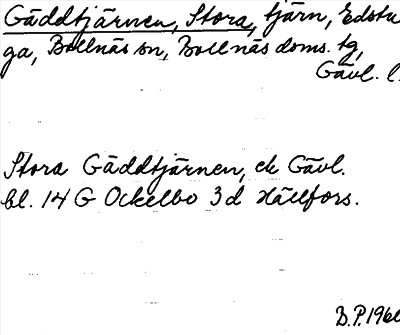 Gäddtjärnen, Stora, tjärn, Edstu
ga, Bollnäs sn, Bollnäs doms. tg,
Gävl. l.
Stora Gäddtjärnen, ek Gävl.
bl. 14 G Ockelbo 3d Hällfors.
B.P. 196